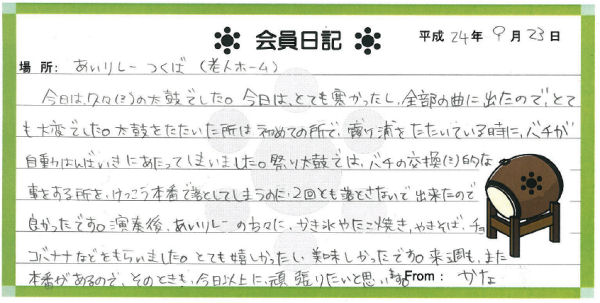 会員日記
平成 24年 9月 23日
場所: あいリレー つくば (老人ホーム)
今日は、久々(?)の太鼓でした。今日は、とても寒かったし、全部の曲に出たので、とて
も大変でした。太鼓をたたいた所は初めての所で、霞ヶ浦をたたいている時に、バチが
自動はんばいきにあたってしまいました。祭り太鼓では、バチの交換(?)的な
事をする所を、けっこう本番で落としてしまうのに、2回とも落とさないで出来たので
良かったです。演奏後、あいリレーの方々に、かき氷やたこ焼き、やきそば、チョ
コバナナなどをもらいました。とても嬉しかったし、美味しかったです。来週も、また
本番があるので、そのときも、今日以上に、頑張りたいと思います。From: かな